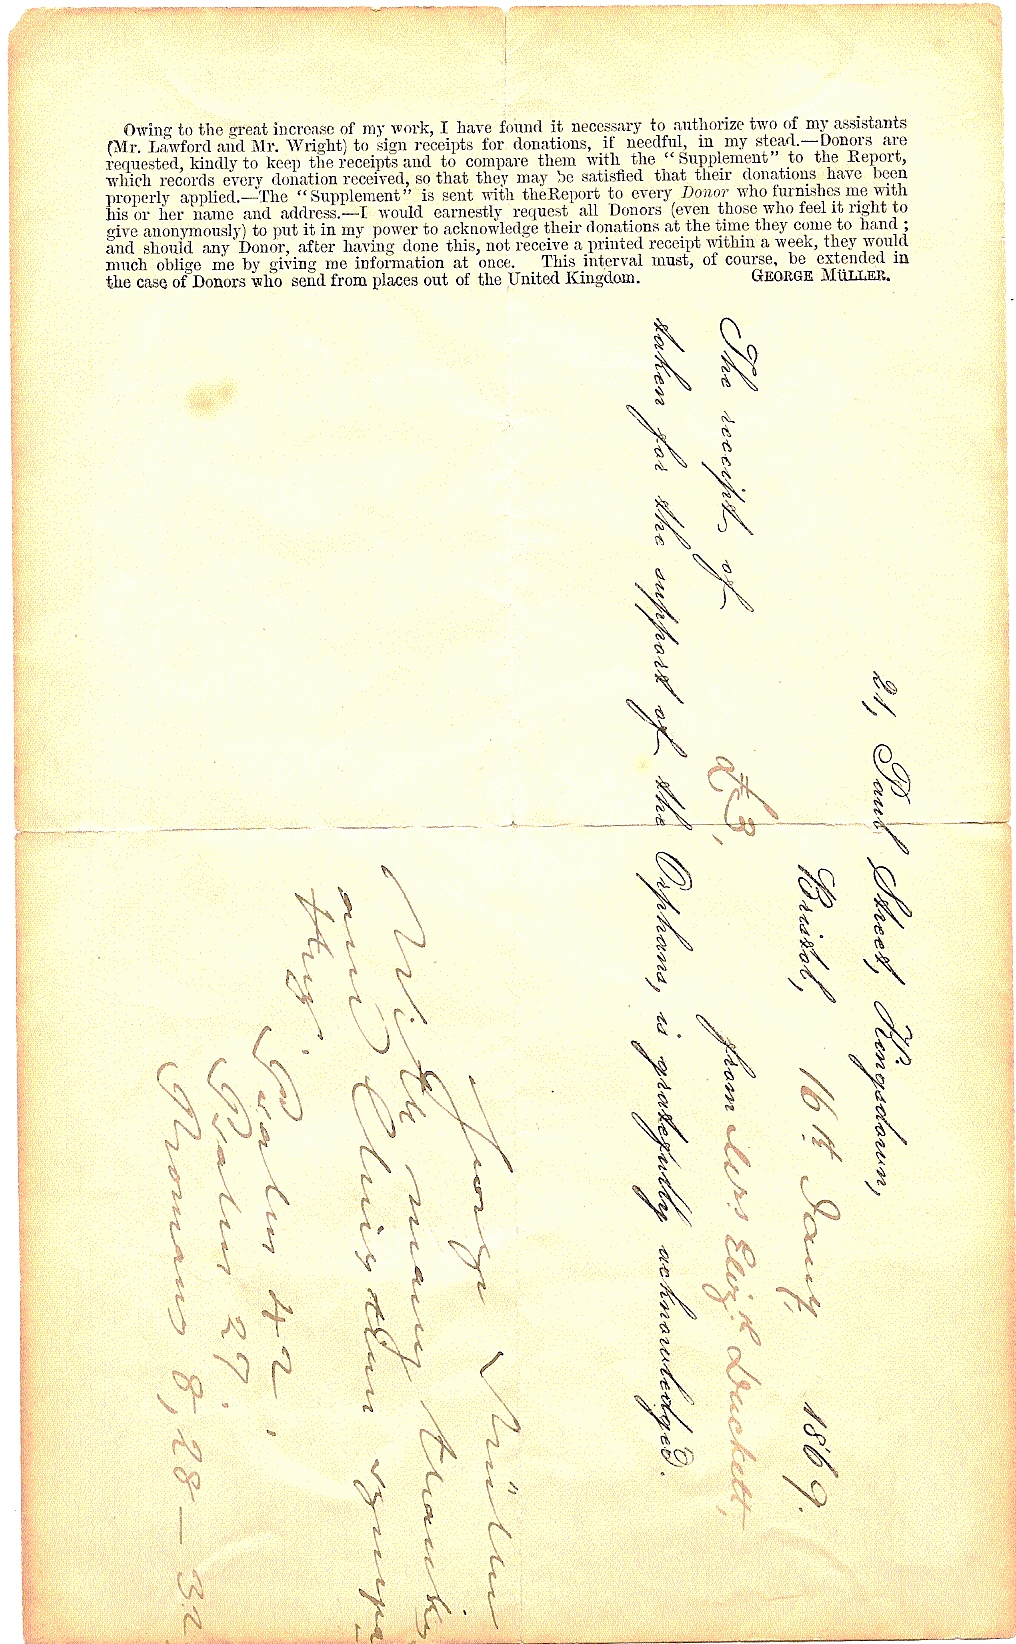 Owing to the great increase of my work, I have found it necessary to authorize two of my assistants
(Mr. Lawford and Mr. Wright) to sign receipts for donations, if needful, in my stead.—Donors are
requested, kindly to keep the receipts and to compare them with the "Supplement" to the Report,
which records every donation received, so that they may be satisfied that their donations have been
properly applied.—The "Supplement" is sent with theReport to every Donor who furnishes me with
his or her name and address.—I would earnestly request all Donors (even those who feel it right to
give anonymously) to put it in my power to acknowledge their donations at the time they come to hand ;
and should any Donor, after having done this, not receive a printed receipt within a week, they would
much oblige me by giving me information at once. This interval must, of course, be extended in
the case of Donors who send from places out of the United Kingdom. GEORGE MÜLLER.
21, Paul Street, Kingsdown,
Bristol, 16th Jany, 1869.
The receipt of £3, from Mrs Elizth Duckett,
taken for the support of the Orphans, is gratefully acknowledged.
George Müller
With many thanks
and Christian sympa
thy.
Psalm 42.
Psalm 27.
Romans 8, 28—32